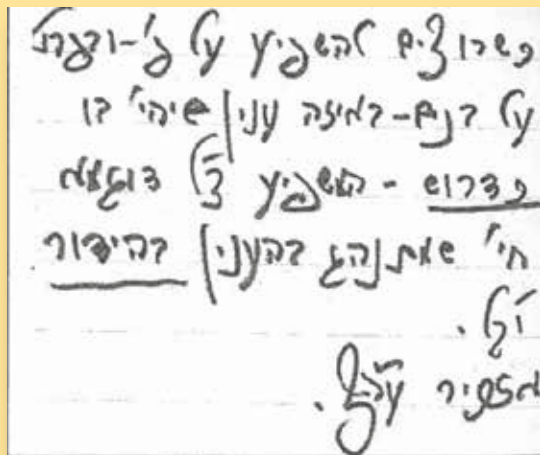 כשרוצים להשפיע על ב'-ובפרט
על בנים-באיזה ענין שיהי' בו
כדרוש - המשפיע צ"ל דוגמא
חי' שמתנהג בהענין בהידור
אזכיר עה"צ.